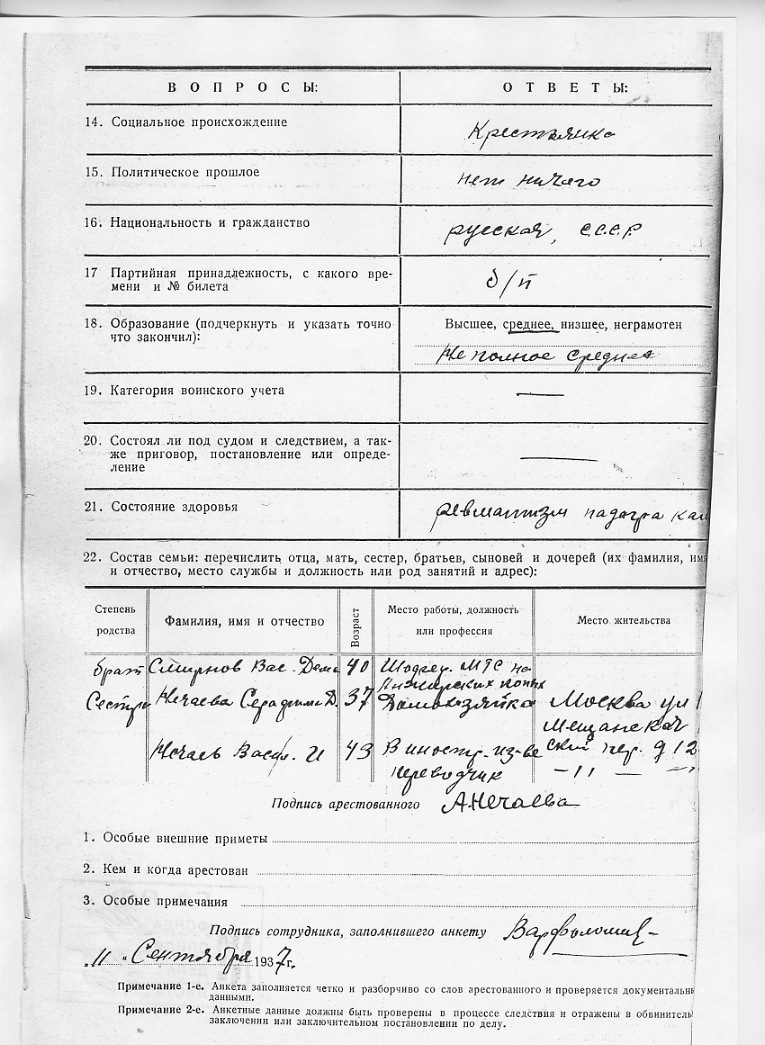 ВОПРОСЫ: ОТВЕТЫ:
14. Социальное происхождение Крестьянка
15. Политическое прошлое нет ничего
16. Национальность и гражданство русская, С.С.С.Р.
17 Партийная принадлежность, с какого вре-
мени и № билета б/п
18. Образование (подчеркнуть и указать точно Высшее, среднее, низшее, неграмотен
что закончил): Не полное среднее
19. Категория воинского учета —
20. Состоял ли под судом и следствием, а так-
же приговор, постановление или опреде- —
ление
21. Состояние здоровья ревматизм падагра
22. Состав семьи: перечислить отца, мать, сестер, братьев, сыновей и дочерей (их фамилия, имя
и отчество, место службы и должность или род занятий и адрес):
Степень родства Фамилия, имя и отчество Возраст Место работы, должность или профессия Место жительства
брат Смирнов Вас. 40 МТС на
Сестра Нечаева Серафима Д. 37 Домохозяйка Москва ул
Мещанская
Нечаев Васил. И 43 В иностр. из-ве пер. д 12
переводчик — 11 —
Подпись арестованного А.Нечаева
1. Особые внешние приметы
2. Кем и когда арестован
3. Особые примечания
Подпись сотрудника, заполнившего анкету
„11" Сентября 1937г.
Примечание 1-е. Анкета заполняется четко и разборчиво со слов арестованного и проверяется документальн
данными.
Примечание 2-е. Анкетные данные должны быть проверены в процессе следствия и отражены в обвинитель
заключении или заключительном постановлении по делу.